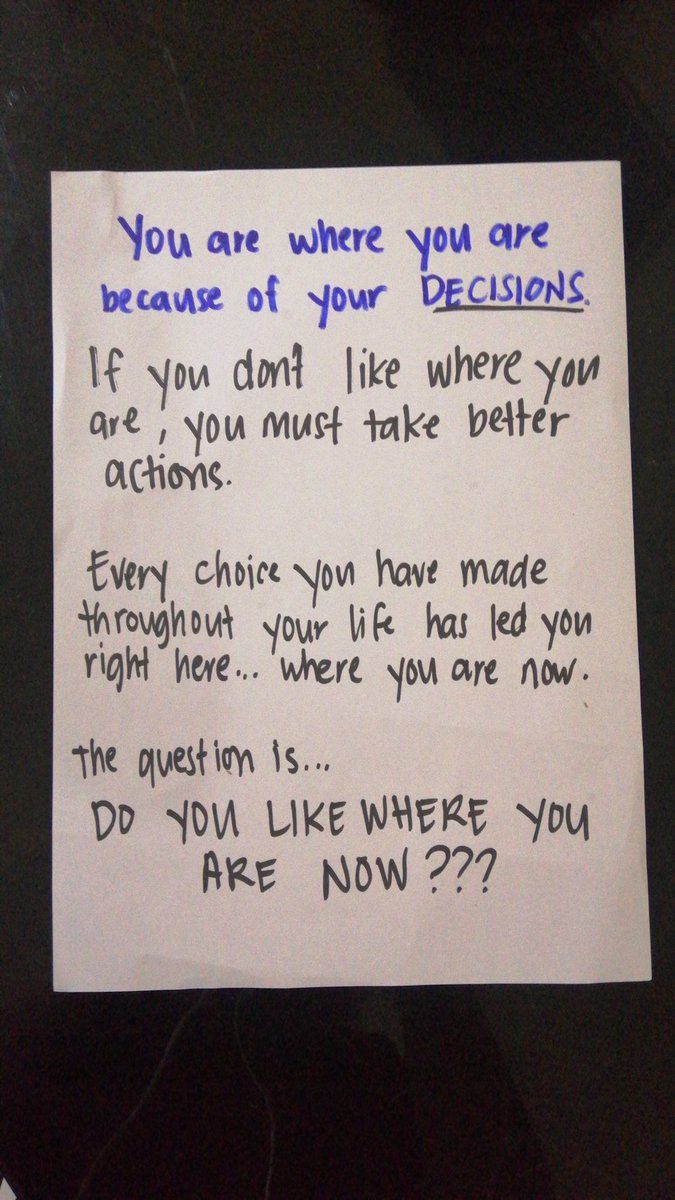 You are where you are
because of your DECISIONS.
If you don't like where you
are, you must take better
actions.
Every choice you have made
throughout your life has led you
right here... where you are now.
The question is...
DO YOU LIKE WHERE YOU
ARE NOW???